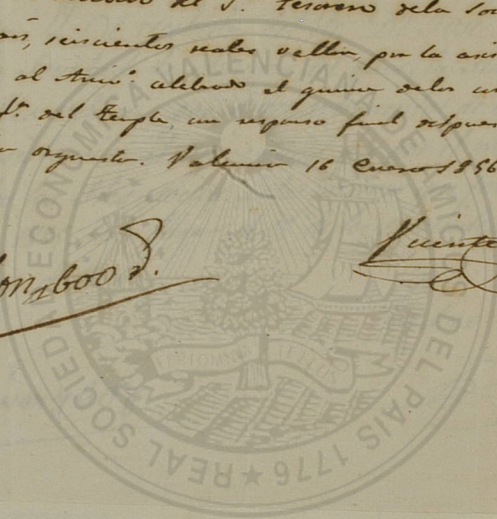 del S. Tesorero dela So
seiscientos reales vellon, por la
al celebrado el quince delos
del Temple, un responso final despues
orquesta. Valencia 16 Enero 1856
Son, 600 r.
Vicente
REAL SOCIEDAD ECONOMICA VALENCIANA DE AMIGOS DEL PAIS 1776